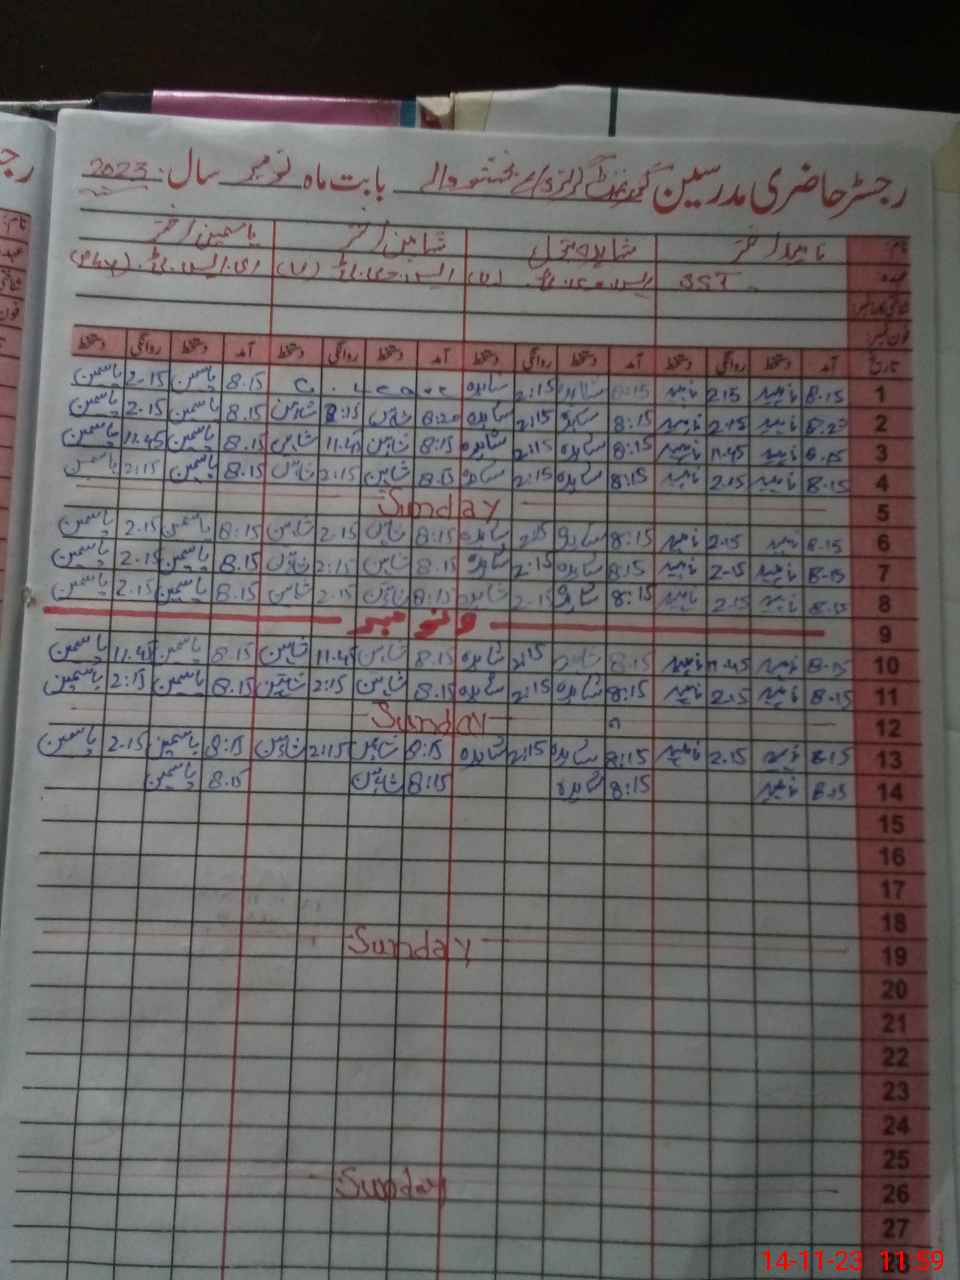 رجسٹر حاضری مدرسین گورنمنٹ گرلز بابت ماہ نومبر سال 2023
نام: ناہید اختر شاہدہ شاہین اختر یاسمین اختر
عہدہ SST
شناختی کارڈ نمبر
فون نمبر
تاریخ آمد دستخط روانگی دستخط آمد دستخط روانگی دستخط آمد دستخط روانگی دستخط آمد دستخط روانگی دستخط
1 8.15 ناہید 2.15 ناہید 8:15 شاہدہ 2:15 شاہدہ 8.15 یاسمین 2.15 یاسمین
2 ناہید 2.15 ناہید 8:15 شاہدہ 2:15 شاہدہ 8:20 شاہین شاہین 8.15 یاسمین 2.15 یاسمین
3 8.15 ناہید 11.45 ناہید 8:15 شاہدہ 2:15 شاہدہ 8:15 شاہین 11.45 شاہین 8.15 یاسمین 11.45 یاسمین
4 8.15 ناہید 2.15 ناہید 8:15 شاہدہ 2:15 شاہدہ 8:15 شاہین 2:15 شاہین 8.15 یاسمین 2:15 یاسمین
5 Sunday
6 8.15 ناہید 2.15 ناہید 8:15 شاہدہ 2:15 شاہدہ 8:15 شاہین 2.15 شاہین 8:15 یاسمین 2.15 یاسمین
7 8.15 ناہید 2.15 ناہید 8:15 شاہدہ 2:15 شاہدہ 8.15 شاہین 2:15 شاہین 8.15 یاسمین 2.15 یاسمین
8 8.15 ناہید 2.15 ناہید 8:15 شاہدہ 2.15 شاہدہ 8:15 شاہین 2.15 شاہین 8.15 یاسمین 2.15 یاسمین
9 نومبر
10 8.15 ناہید 11.45 ناہید 8:15 شاہدہ 2:15 شاہدہ 8.15 شاہین 11.45 شاہین 8.15 یاسمین 11.45 یاسمین
11 8.15 ناہید 2.15 ناہید 8:15 شاہدہ 2:15 شاہدہ 8.15 شاہین 2:15 شاہین 8.15 یاسمین 2:15 یاسمین
12 Sunday
13 8.15 ناہید 2.15 ناہید 8:15 شاہدہ 2:15 شاہدہ 8:15 شاہین 2:15 شاہین 8:15 یاسمین 2.15 یاسمین
14 8.15 ناہید 8:15 شاہدہ 8:15 شاہین 8.15 یاسمین
15
16
17
18
19 Sunday
20
21
22
23
24
25
26 Sunday
27
28
14-11-23 11:59